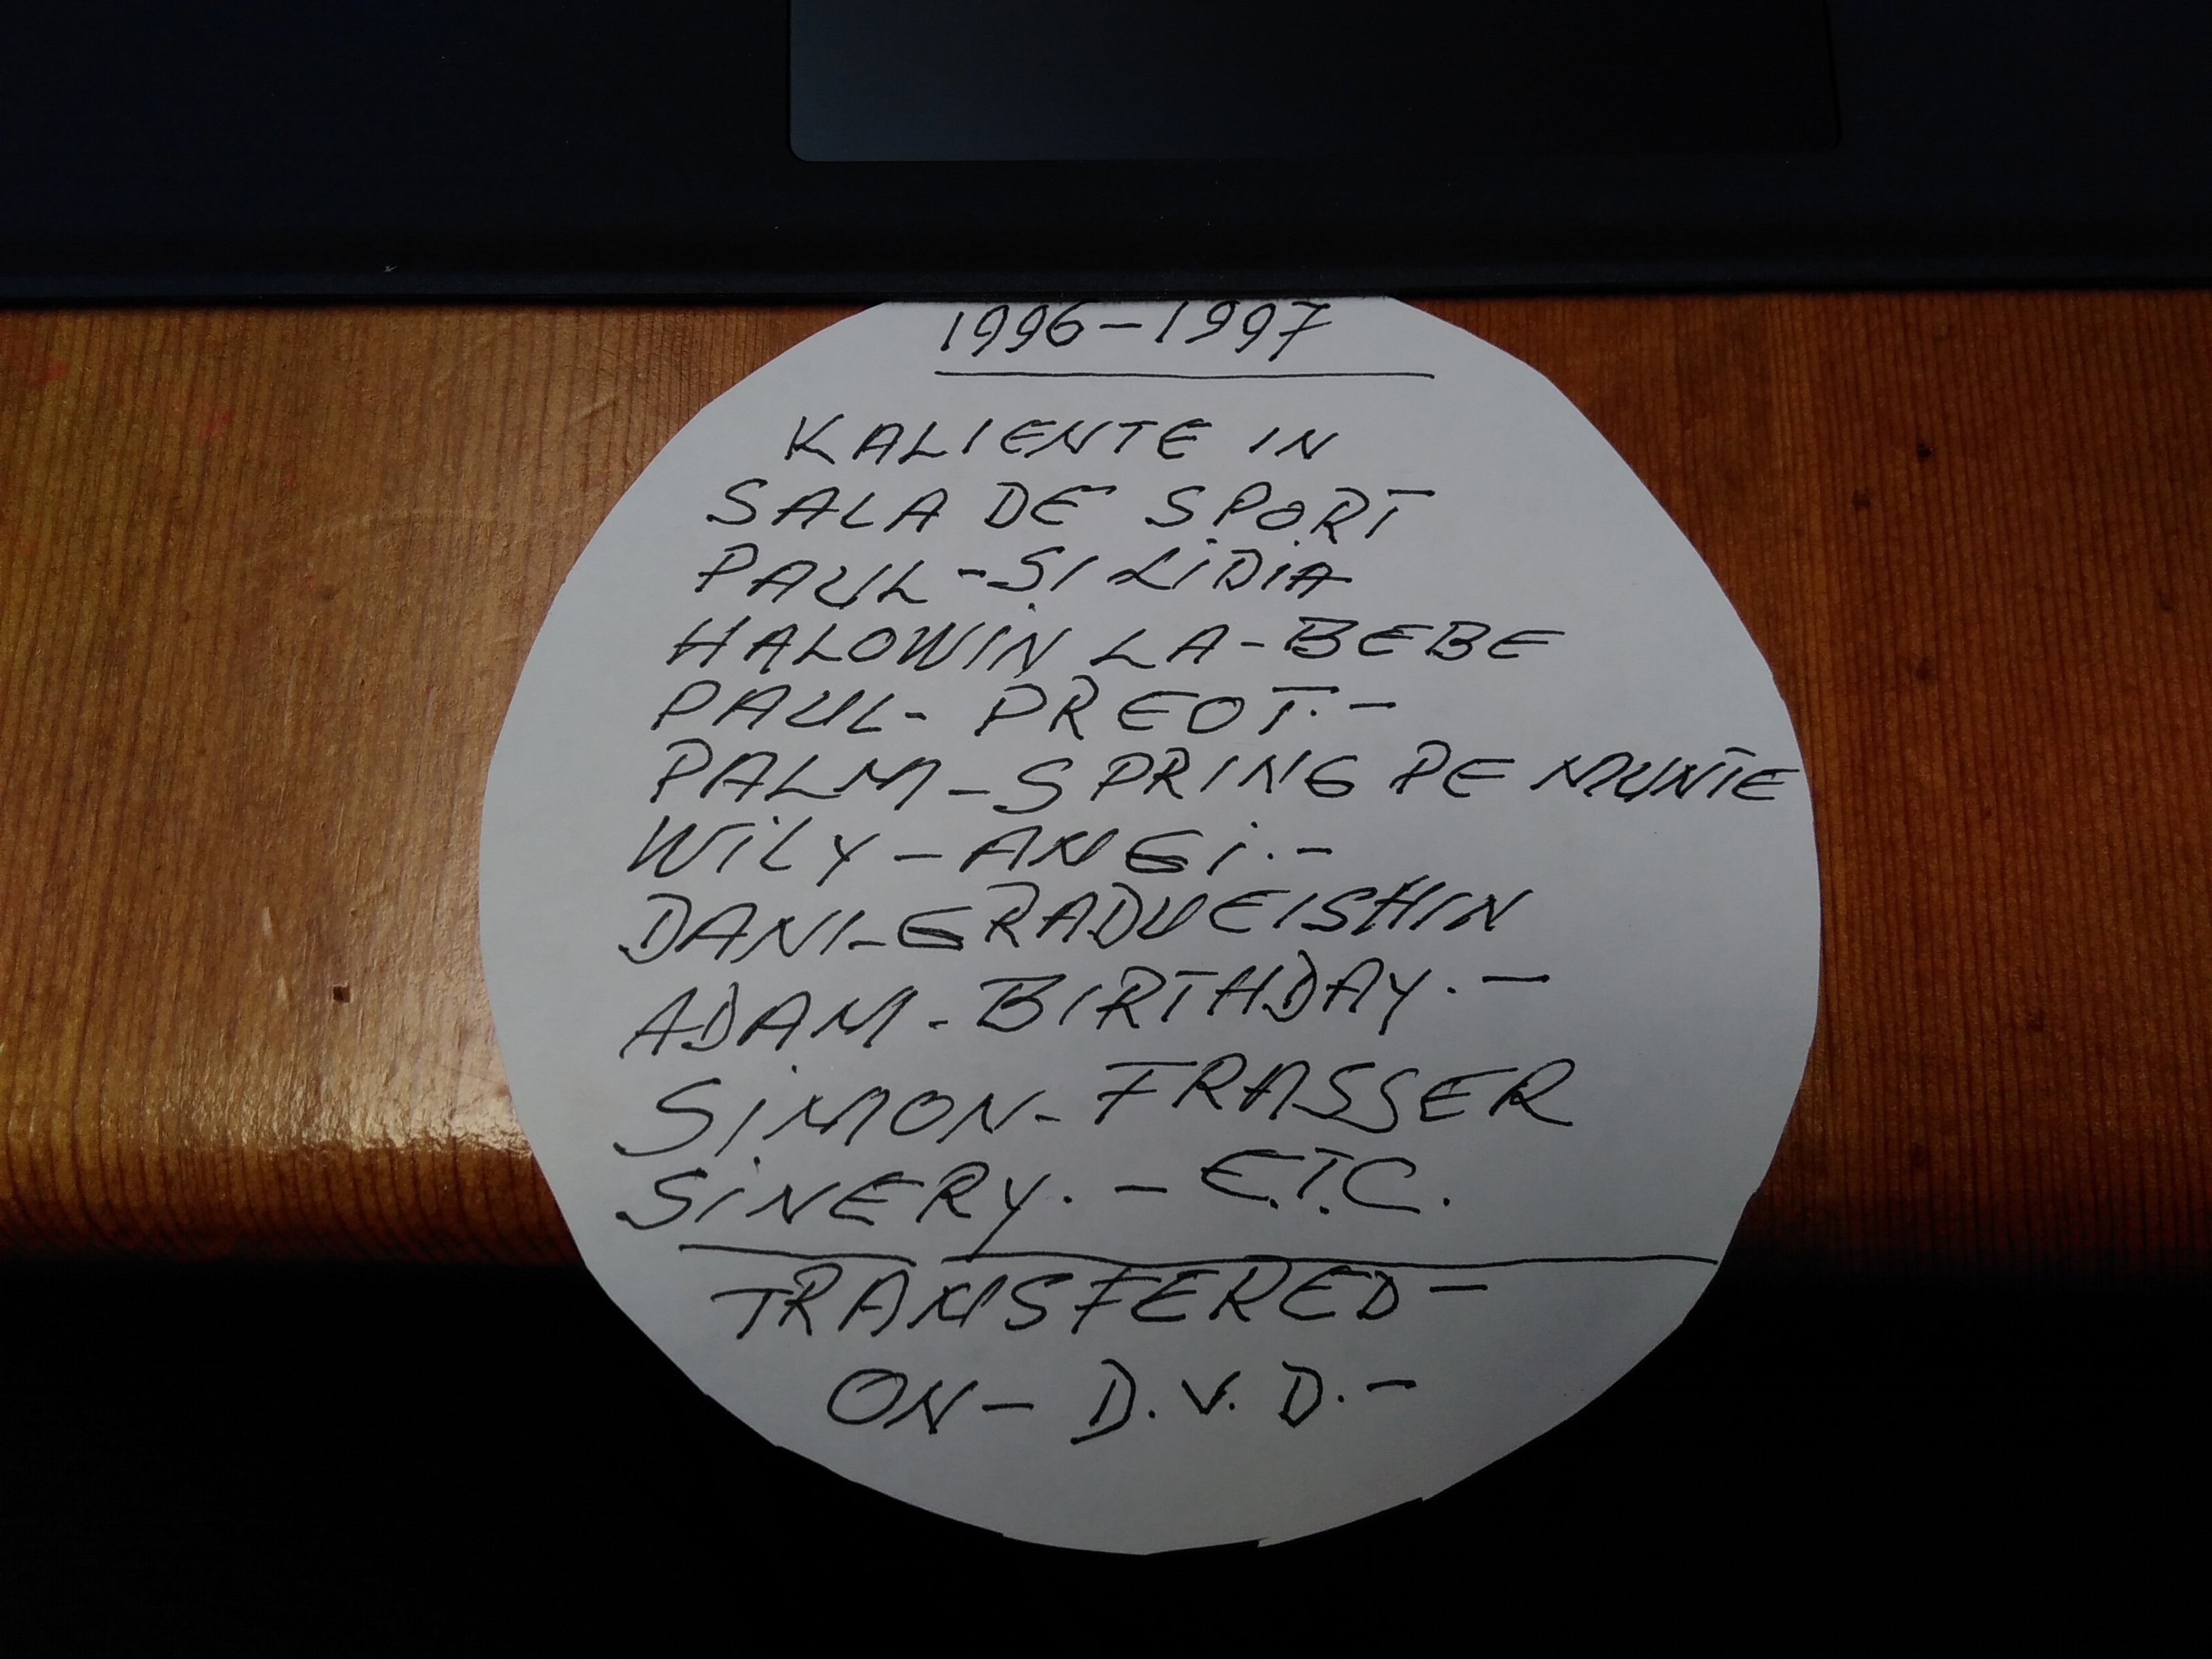 1996-1997
KALIENTE IN
SALA DE SPORT
PAUL-SI LiDiA
HALOWIN LA-BEBE
PAUL- PREOT.-
PALM-SPRING PE MUNTE
WiLY-ANGi.-
DANI-GRADUEISHIN
ADAM-BIRTHDAY.-
SiMON-FRASSER
SiNERY.-E.T.C.
TRANSFERED-
ON- D.V.D.-